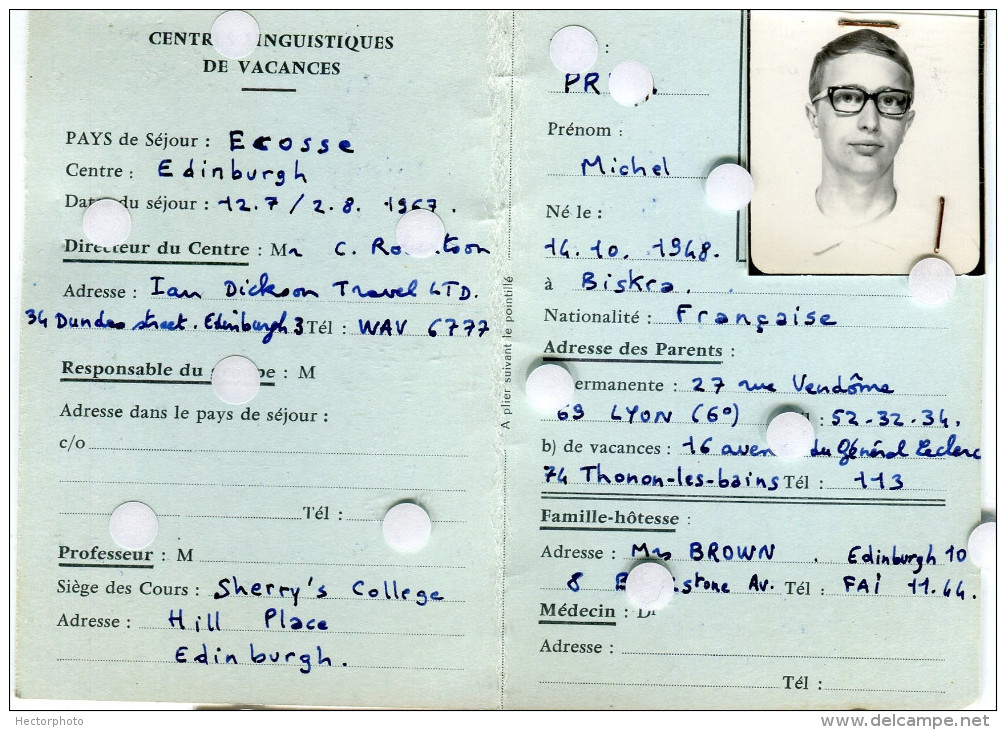 DE VACANCES
PAYS de Séjour : Ecosse
Centre : Edinburgh
du séjour : 12.7 / 2.8. 1967.
Directeur du Centre : Mr C.
Adresse : Ian Dickson Travel LTD.
34 Dundas street. Edinburgh 3 Tél : WAV 6777
Responsable du : M
Adresse dans le pays de séjour :
c/o
Tél :
Professeur : M
Siège des Cours : Sherry's College
Adresse : Hill Place
Edinburgh.
A plier suivant le pointillé
Prénom :
Michel
Né le :
14.10. 1948.
à Biskra.
Nationalité : Française
Adresse des Parents :
permanente : 27 rue Vendôme
69 LYON (6°) : 52-32-34.
b) de vacances : 16 du Général Leclerc
74 Thonon-les-bains Tél : 113
Famille-hôtesse :
Adresse : Mrs BROWN . Edinburgh 10
8 Av. Tél : FAI 11.44.
Médecin : Dr
Adresse :
Tél :
Hectorphoto
www.delcampe.net